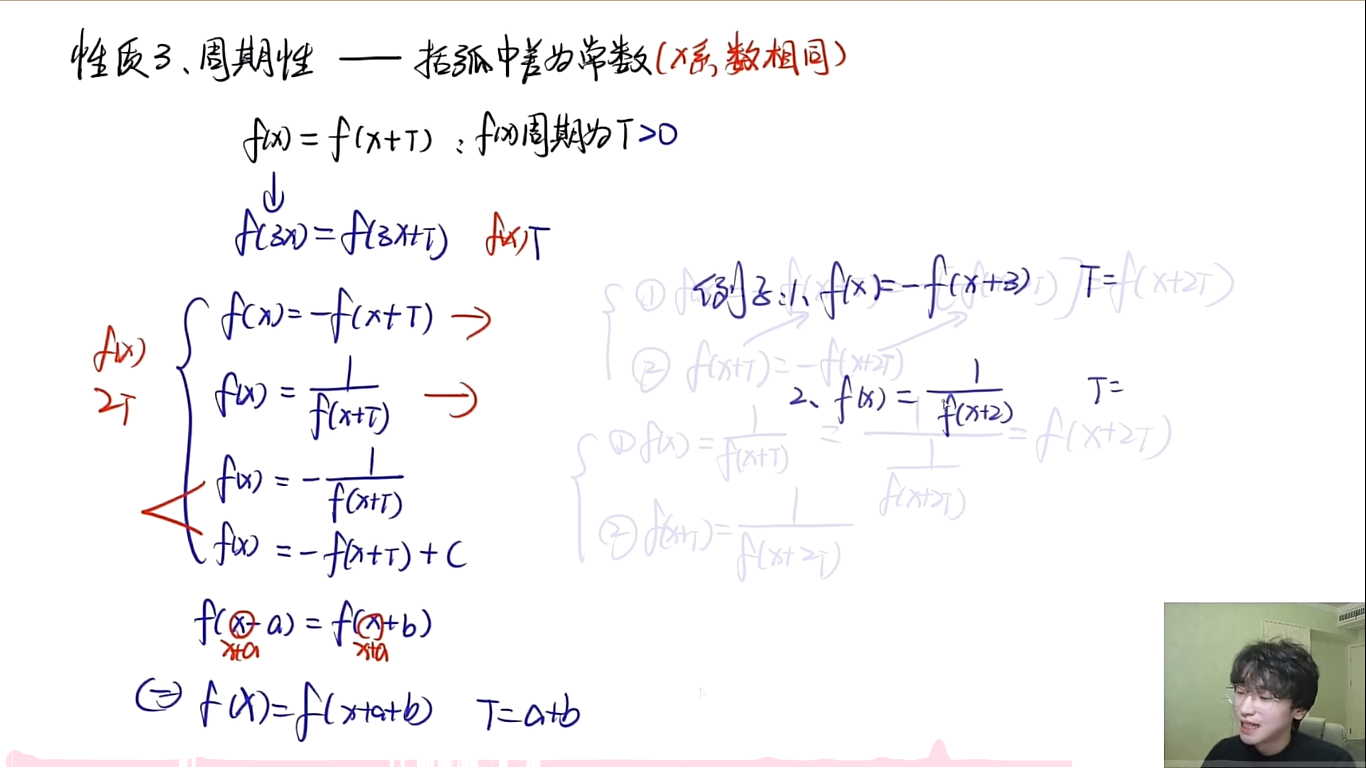 性质3、周期性 —— 括弧中差为常数(x系数相同)
f(x) = f(x+T) : f(x)周期为T>0
↓
f(3x)=f(3x+T) f(x)T
f(x)
2T
f(x)=-f(x+T) →
f(x) = 1/f(x+T) →
f(x) = -1/f(x+T)
f(x) = -f(x+T)+C
f(x-a) = f(x+b)
x+a x+a
⇔ f(x)=f(x+a+b) T=a+b
例子:1、f(x)=-f(x+3) T=
2、f(x) = 1/f(x+2) T=
① =f(x+2T)
② f(x+T)=-f(x+2T)
① f(x) = 1/f(x+T) = 1/(1/f(x+2T)) = f(x+2T)
② f(x+T)= 1/f(x+2T)